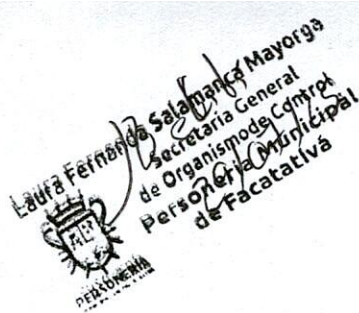 Laura Fernanda Salamanca Mayorga
Secretaria General
de Organismo de Control
Personería Municipal
de Facatativá
PERSONERÍA